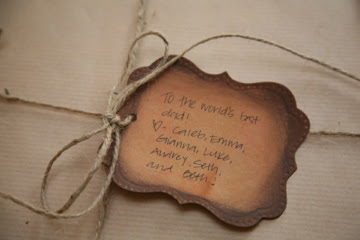 To the world's best
dad!
♡- Caleb, Emma,
Gianna, Luke,
Audrey, Seth,
and Beth!